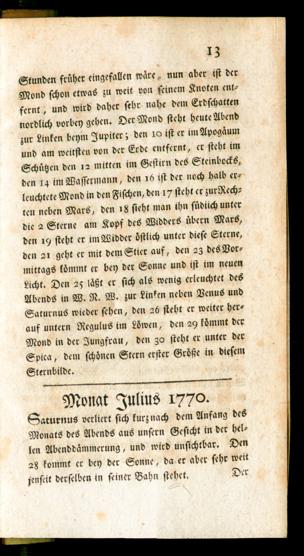 13
Stunden früher eingefallen wäre, nun aber ist der
Mond schon etwas zu weit von seinem Knoten ent-
fernt, und wird daher sehr nahe dem Erdschatten
nordlich vorbey gehen. Der Mond steht heute Abend
zur Linken beym Jupiter; den 10 ist er im Apogäum
und am weitsten von der Erde entfernt, er steht im
Schützen den 12 mitten im Gestirn des Steinbocks,
den 14 im Wassermann, den 16 ist der noch halb er-
leuchtete Mond in den Fischen, den 17 steht er zur Rech-
ten neben Mars, den 18 sieht man ihn südlich unter
die 2 Sterne am Kopf des Widders übern Mars,
den 19 steht er im Widder östlich unter diese Sterne,
den 21 geht er mit dem Stier auf, den 23 des Vor-
mittags kömmt er bey der Sonne und ist im neuen
Licht. Den 25 läßt er sich als wenig erleuchtet des
Abends in W. N. W. zur Linken neben Venus und
Saturnus wieder sehen, den 26 steht er weiter her-
auf untern Regulus im Löwen, den 29 kömmt der
Mond in der Jungfrau, den 30 steht er unter der
Spica, dem schönen Stern erster Größe in diesem
Sternbilde.
Monat Julius 1770.
Saturnus verliert sich kurz nach dem Anfang des
Monats des Abends aus unsern Gesicht in der hel-
len Abenddämmerung, und wird unsichtbar. Den
28 kommt er bey der Sonne, da er aber sehr weit
jenseit derselben in seiner Bahn stehet.
Der